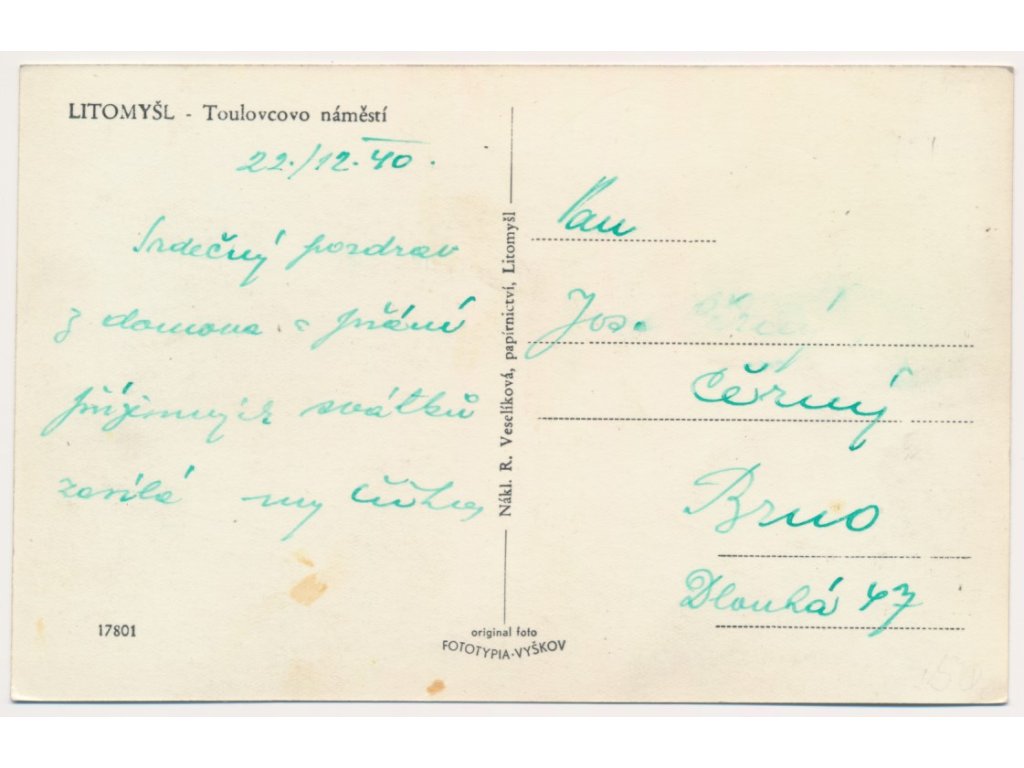 LITOMYŠL - Toulovcovo náměstí
22./12.40.
Srdečný pozdrav
z domova a přání
příjemných svátků
zasílá
Nákl. R. Veselíková, papírnictví, Litomyšl
Pan
Jos.
Černý
Brno
Dlouhá 47
17801
original foto
FOTOTYPIA-VYŠKOV